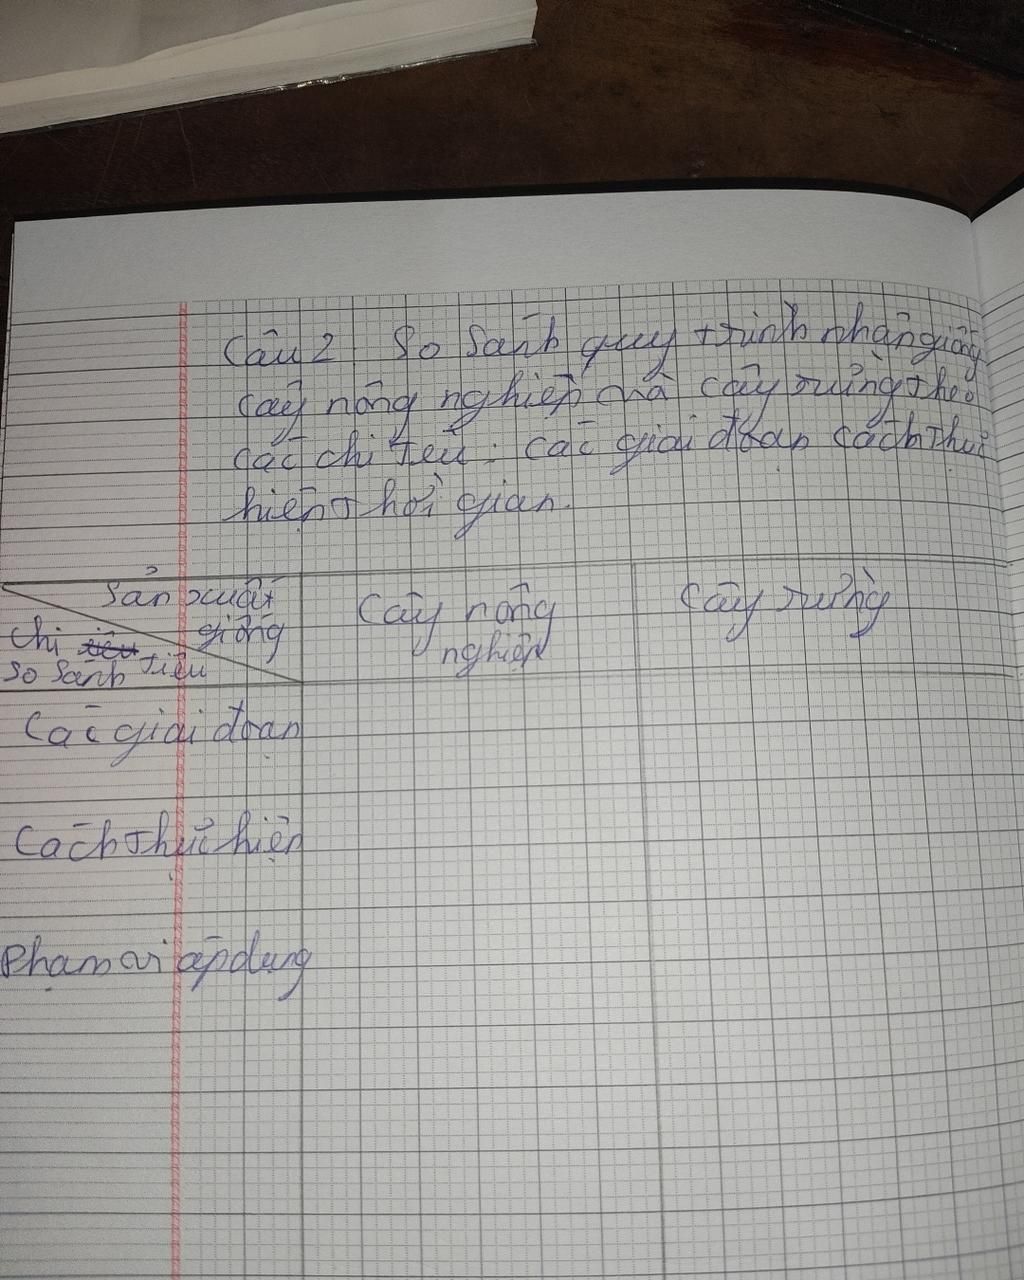 Câu 2 So Sánh quy trình nhân giống
cây nông nghiệp và cây rừng theo
các chi têu : các giai đoạn cách thức
hiện thời gian.
Sản xuất
giống
Chi tiêu
so sánh
Cây nông
nghiệp
Cây rừng
Các giai đoạn
Cách thức hiện
Phạm vi áp dụng